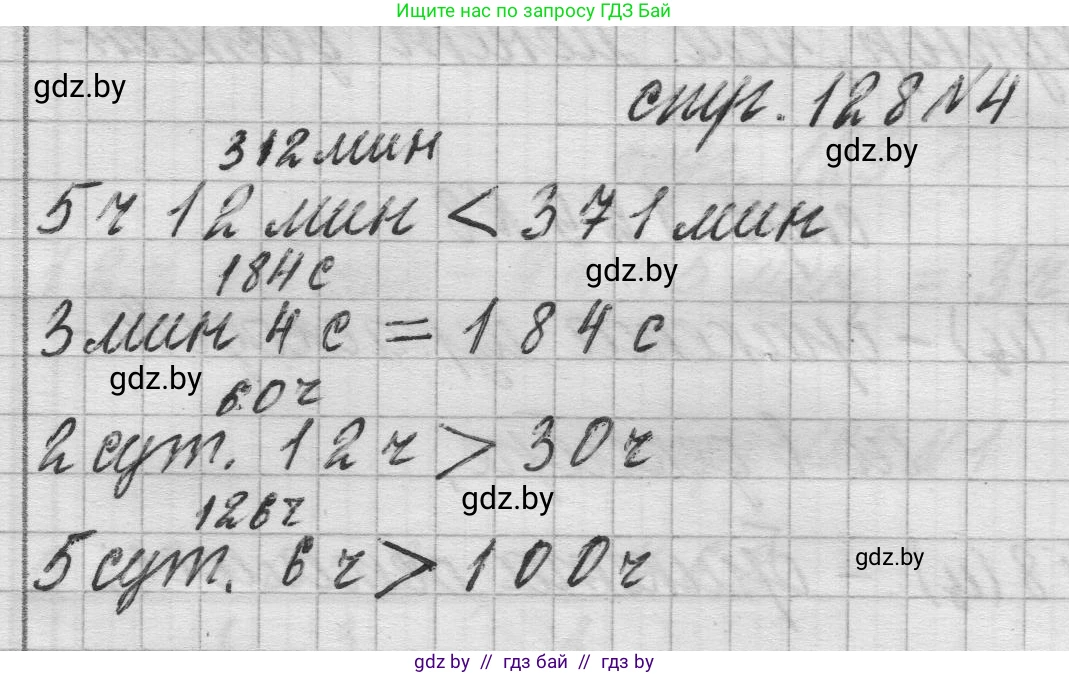 Ищите нас по запросу ГДЗ Бай
gdz.by
стр. 128 №4
gdz.by
312 мин
5 ч 12 мин < 371 мин
184 с
gdz.by
3 мин 4 с = 184 с
gdz.by
60 ч
2 сут. 12 ч > 30 ч
gdz.by
126 ч
5 сут. 6 ч > 100 ч
gdz.by
gdz by // гдз бай // гдз by